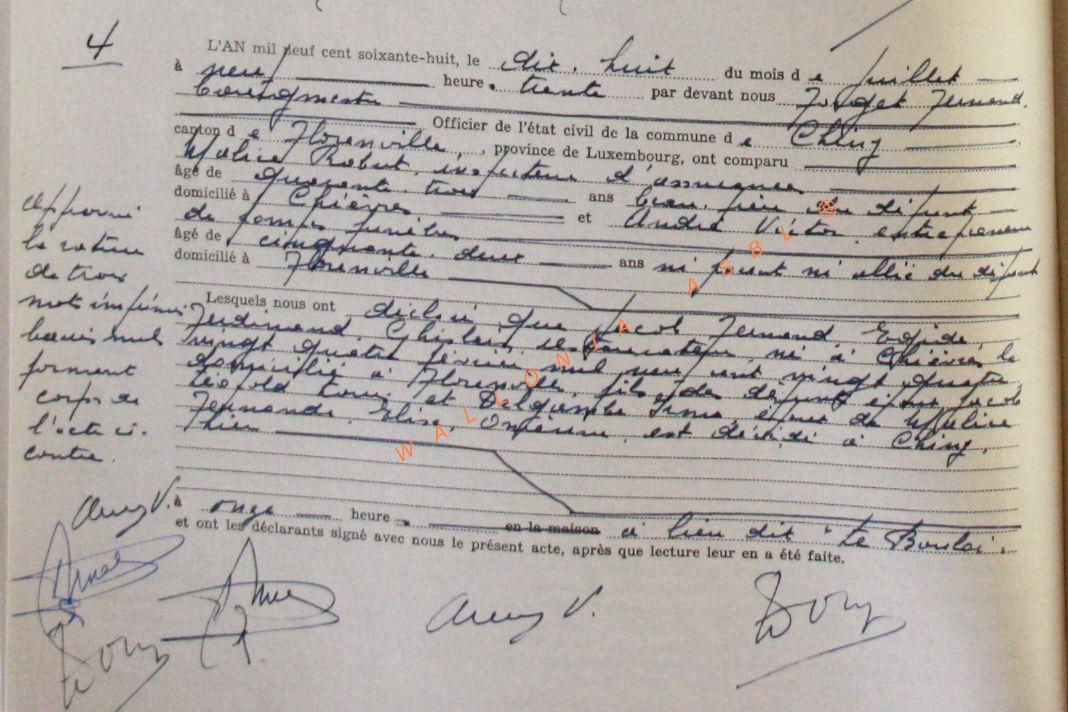 4
L'AN mil neuf cent soixante-huit, le dix-huit du mois de juillet
à neuf heures trente par devant nous Fernand
bourgmestre
Officier de l'état civil de la commune de Chiny
canton de Florenville, province de Luxembourg, ont comparu
Robert, inspecteur d'assurances
âgé de quarante trois ans beau-frère du défunt
domicilié à Chièvres et André Victor, entrepreneur
de pompes funèbres
âgé de cinquante deux ans ni parent ni allié du défunt
domicilié à Florenville
Lesquels nous ont déclaré que Jacob Fernand, Egide,
Ferdinand, Ghislain, restaurateur, né à Chièvres le
vingt quatre février mil neuf cent vingt quatre
domicilié à Florenville, fils des défunts époux Jacob
Léopold Louis et Irma époux de
Fernande Elise, est décédé à Chiny,
hier
à onze heures en la maison à lieu dit "Le
et ont les déclarants signé avec nous le présent acte, après que lecture leur en a été faite.
approuvé
la rature
de trois
mots imprimés
formant
corps de
l'acte ci-
contre.
WALLONIA ASBL